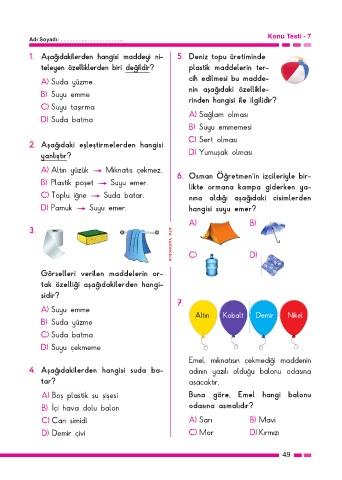 Adı Soyadı: ..............................
Konu Testi - 7
1. Aşağıdakilerden hangisi maddeyi ni-
teleyen özelliklerden biri değildir?
A) Suda yüzme
B) Suyu emme
C) Suyu taşırma
D) Suda batma
2. Aşağıdaki eşleştirmelerden hangisi
yanlıştır?
A) Altın yüzük → Mıknatıs çekmez.
B) Plastik poşet → Suyu emer.
C) Toplu iğne → Suda batar.
D) Pamuk → Suyu emer.
3.
Görselleri verilen maddelerin or-
tak özelliği aşağıdakilerden hangi-
sidir?
A) Suyu emme
B) Suda yüzme
C) Suda batma
D) Suyu çekmeme
4. Aşağıdakilerden hangisi suda ba-
tar?
A) Boş plastik su şişesi
B) İçi hava dolu balon
C) Can simidi
D) Demir çivi
5. Deniz topu üretiminde
plastik maddelerin ter-
cih edilmesi bu madde-
nin aşağıdaki özellikle-
rinden hangisi ile ilgilidir?
A) Sağlam olması
B) Suyu emmemesi
C) Sert olması
D) Yumuşak olması
6. Osman Öğretmen'in izcileriyle bir-
likte ormana kampa giderken ya-
nına aldığı aşağıdaki cisimlerden
hangisi suyu emer?
A) B)
C) D)
7.
Altın Kobalt Demir Nikel
Emel, mıknatısın çekmediği maddenin
adının yazılı olduğu balonu odasına
asacaktır.
Buna göre, Emel hangi balonu
odasına asmalıdır?
A) Sarı B) Mavi
C) Mor D) Kırmızı
49